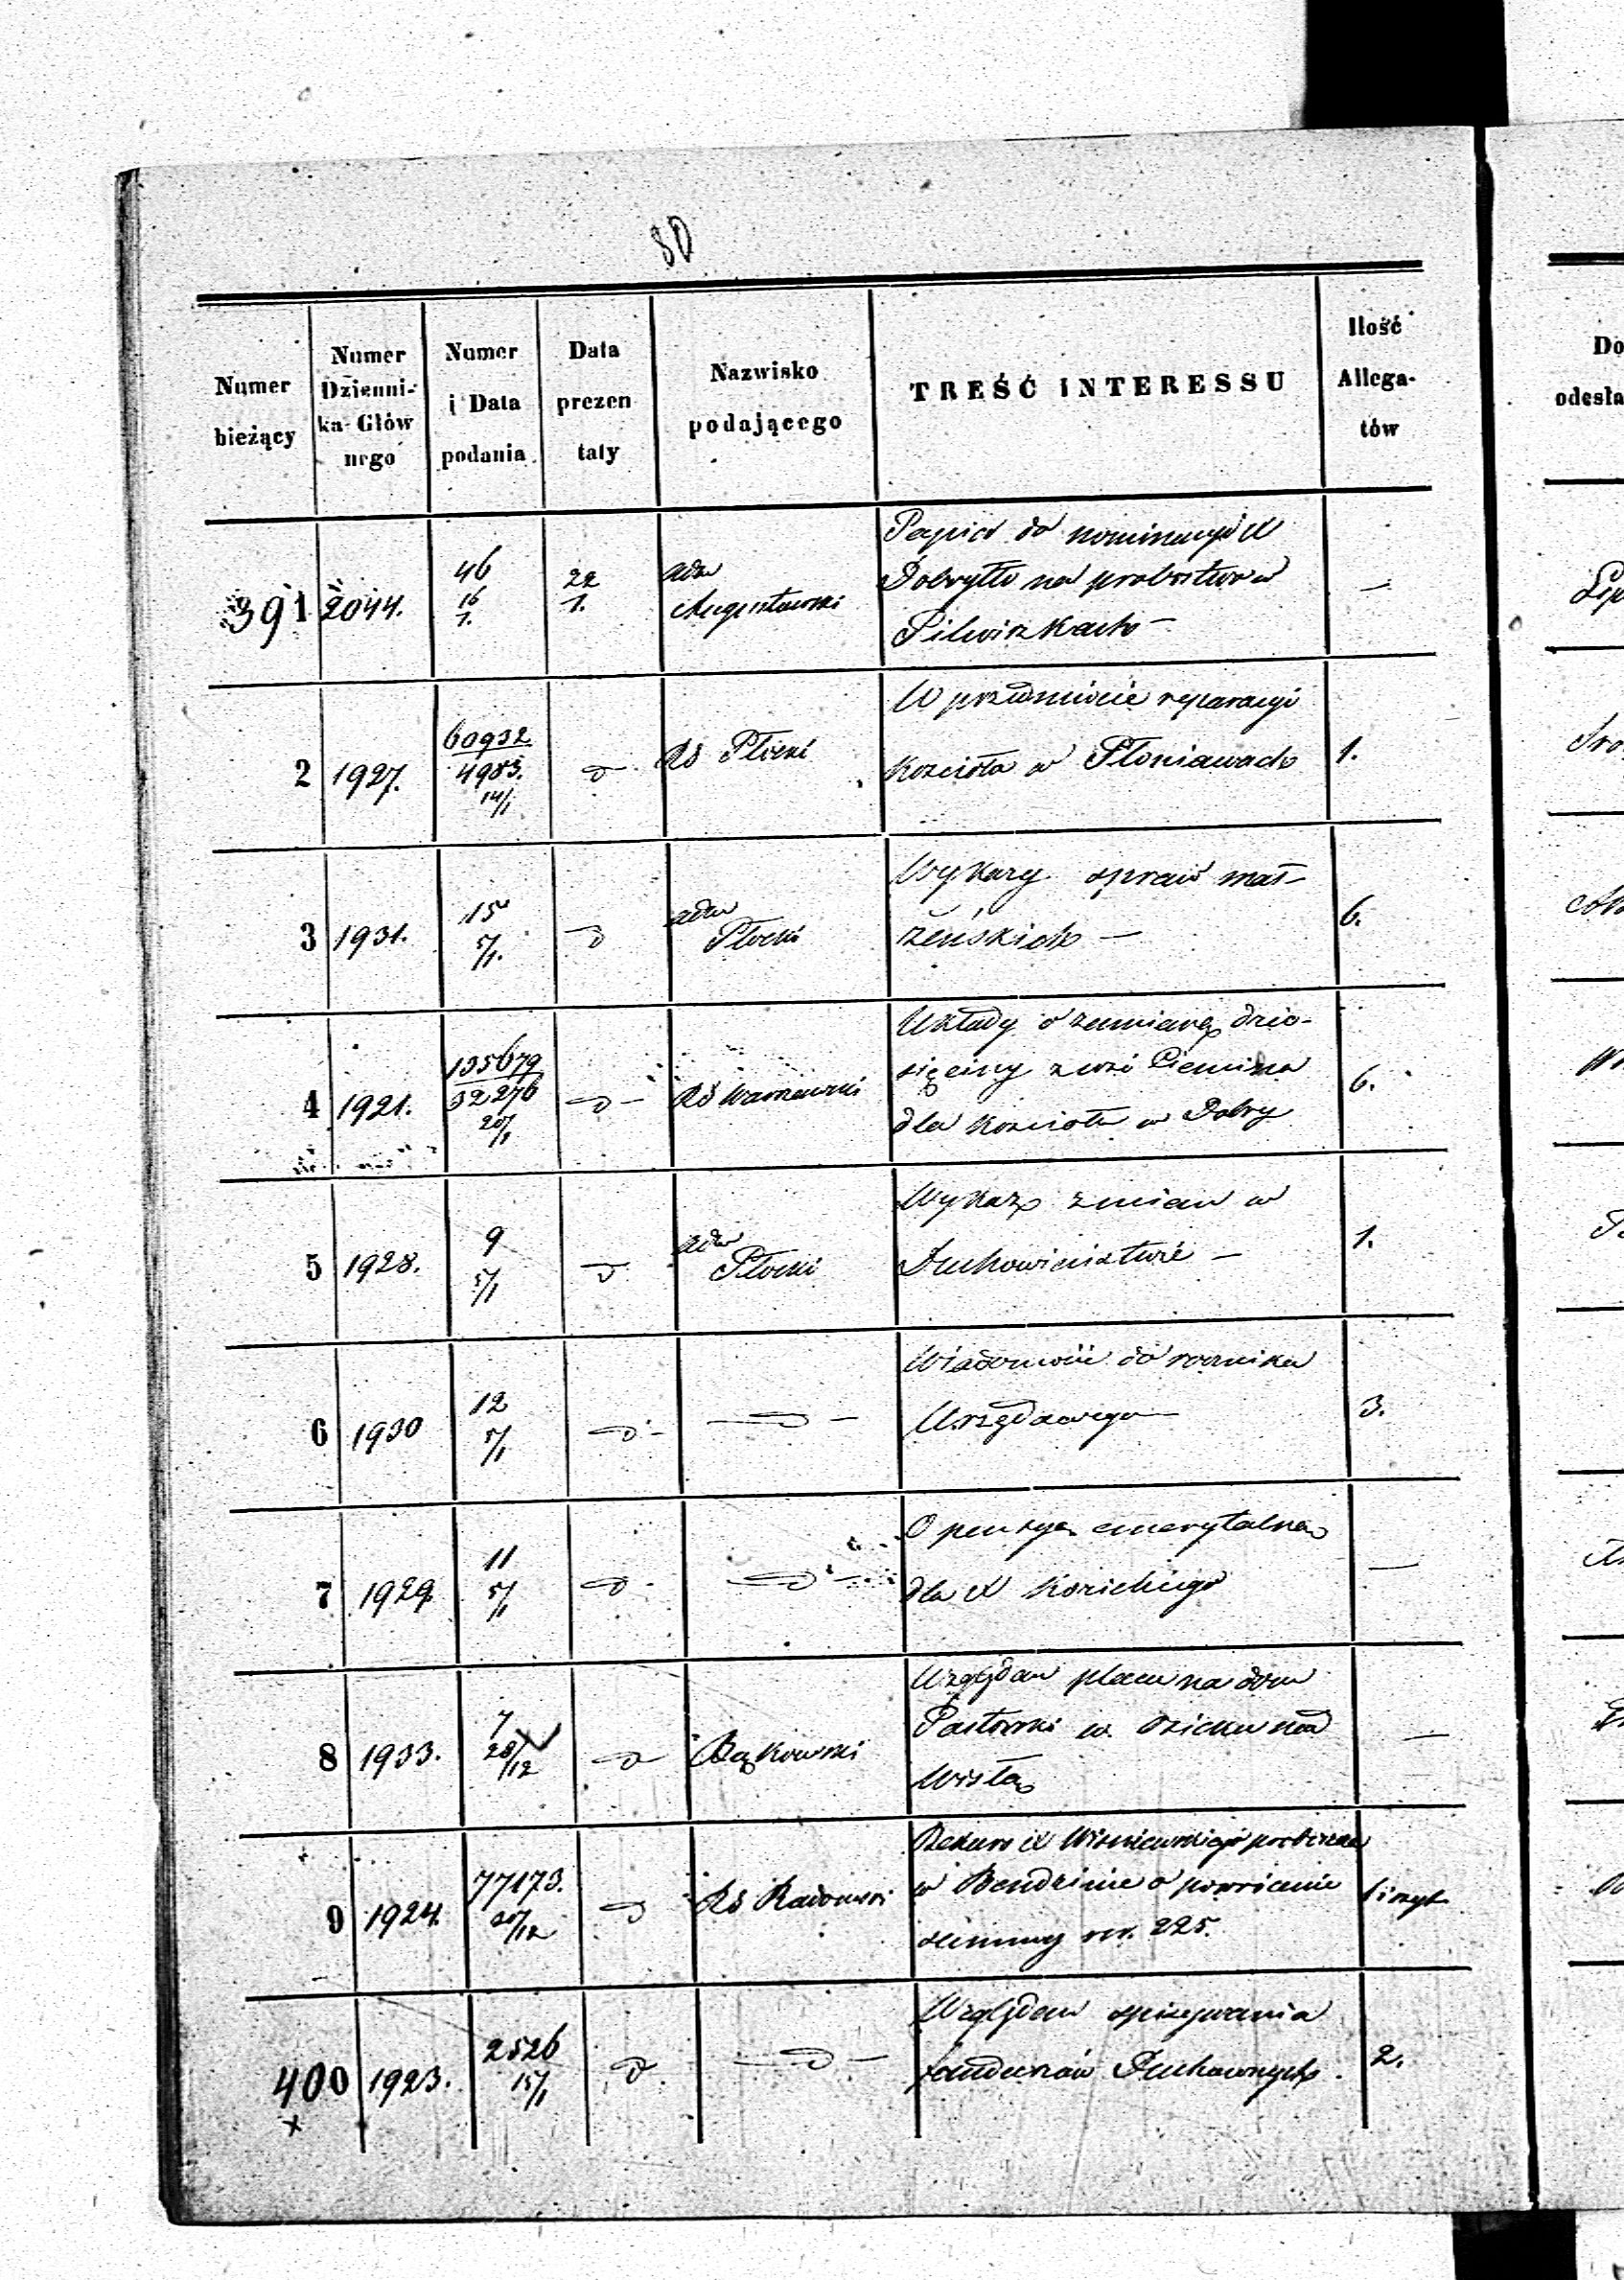 80
Numer bieżący | Numer Dzienni-ka Głównego | Numer i Data podania | Data prezentaty | Nazwisko podającego | TREŚĆ INTERESSU | Ilość Allega-tów
Do
odesła
391 | 2044. | 46 16/1. | 22 1. | adm Augustowski | Papier do nominacyi X
Dobryłło na probostwo w
Pilwiszkach — | —
2 | 1927. | 60932/4983. 14/1 | d | RG Płocki | W przedmiocie reparacyi
Kościoła w Płoniawach | 1.
3 | 1931. | 15 5/1. | d | adm Płocki | Wykazy spraw mał-
żeńskich — | 6.
4 | 1921. | 135679/32276 20/1 | d — | RG Warszawski | Układy o zamianę dzie-
sięciny z wsi
dla Kościoła w Dobry | 6.
5 | 1928. | 9 5/1 | d | adm Płocki | Wykaz zmian w
Duchowieństwie — | 1.
6 | 1930 | 12 5/1 | d — | d — | Wiadomość do rocznika
Urzędowego — | 3.
7 | 1929. | 11 5/1 | d | d — | O pensyą emerytalną
dla X Kozickiego | —
8 | 1933. | 28/12 | d | Bąkowski | Względem placu na dom
Pastorski w Osieku nad
Wisłą | —
9 | 1924. | 77173. 20/12 | d | RG Radomski | Rekurs X Wiśniewskiego proboszcza
w Bendzinie o powrócenie
rs. 225. | 1
400 | 1923. | 2526 15/1 | d | d — | Względem spisywania
funduszów Duchownych. | 2.
x